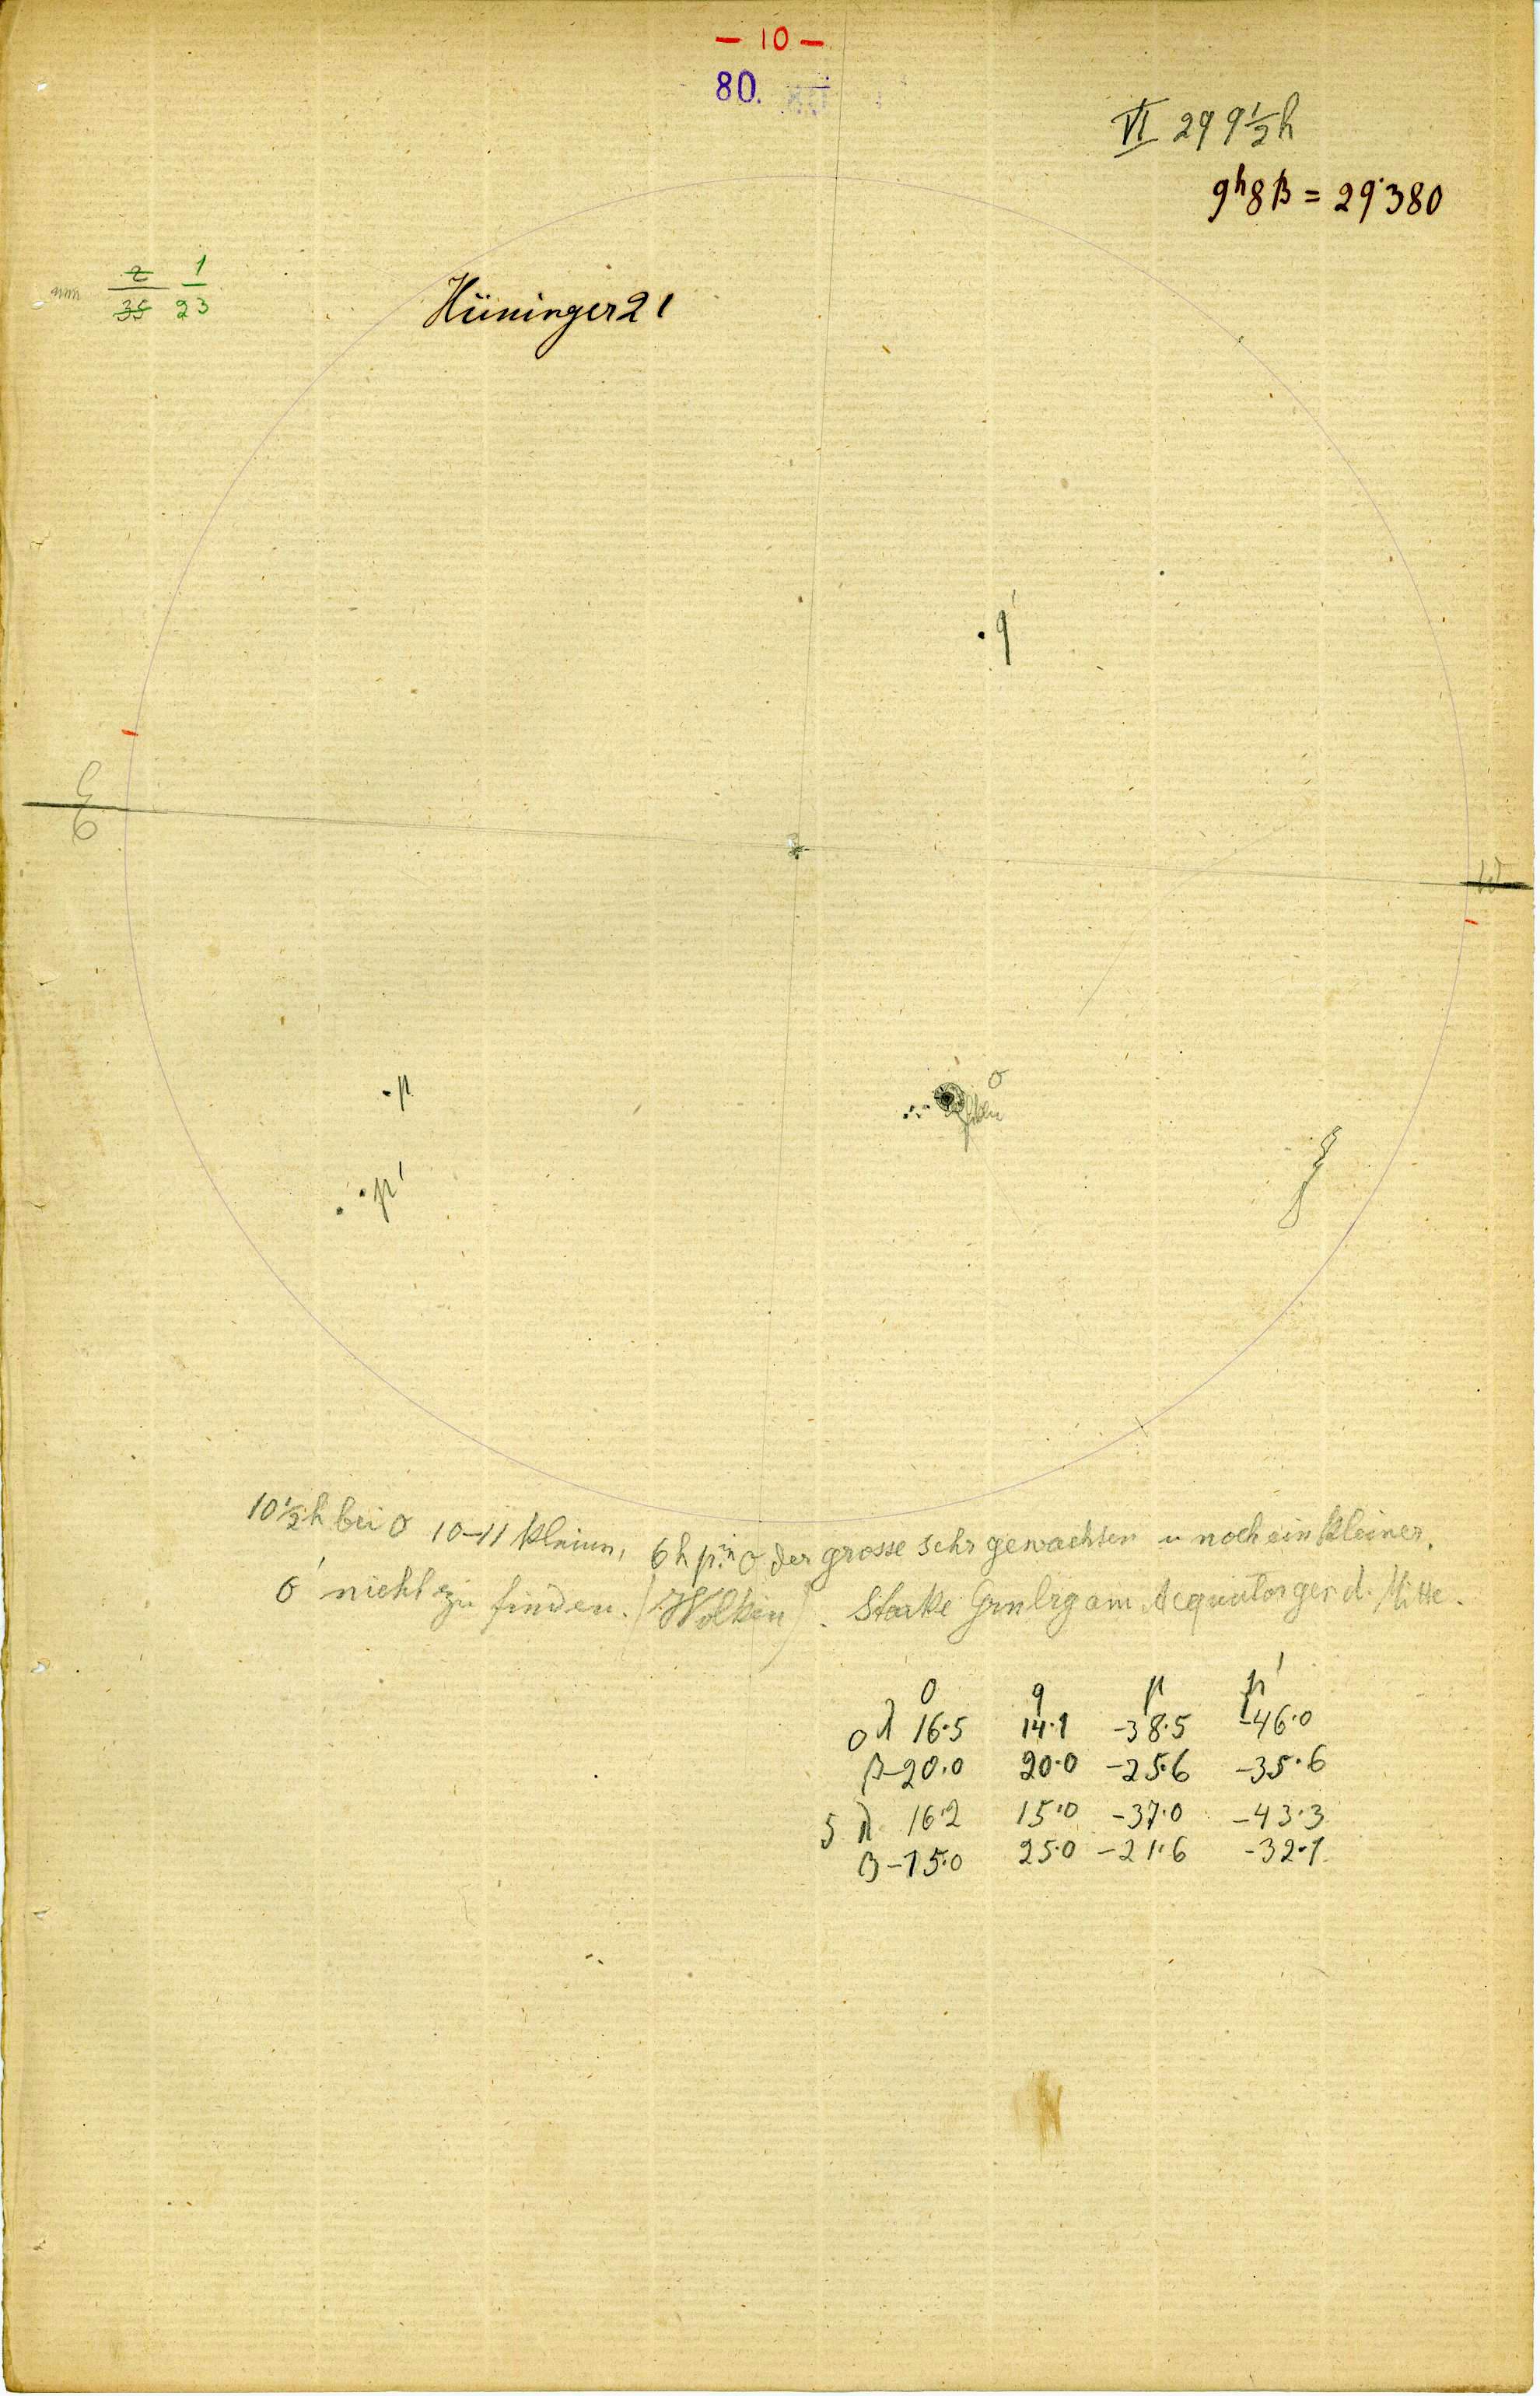 - 10 -
80.
VI 29 9½h
9h8β = 29.380
2 1
35 23
Hüninger 21
q'
E
W
p
σ
p'
10½h bei σ 10-11 kleine, 6h p. in σ der grosse sehr gewachsen u noch ein kleiner.
σ' nicht zu finden. (Wolken). Starke am Aequator geg d. Mitte.
σ q p p'
0 λ 16.5 14.1 -38.5 -46.0
β -20.0 20.0 -25.6 -35.6
5 λ 16.2 15.0 -37.0 -43.3
β -15.0 25.0 -21.6 -32.1